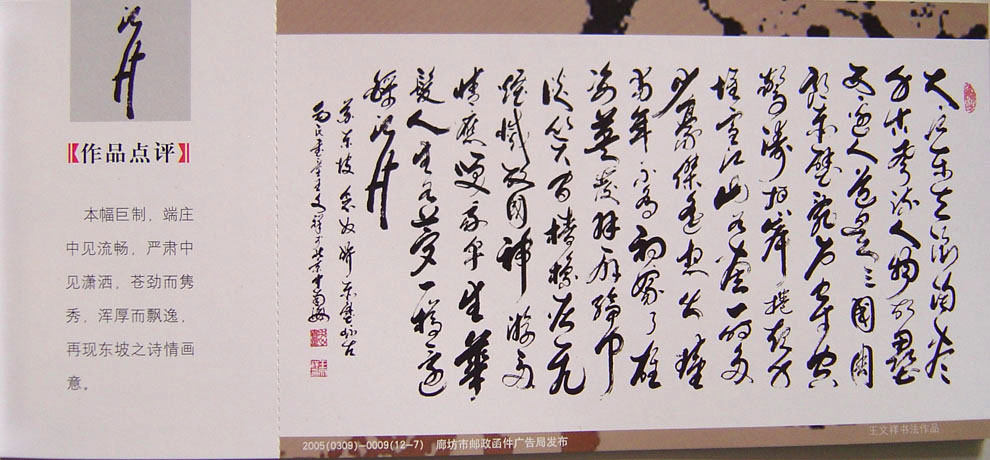 【作品点评】
本幅巨制，端庄
中见流畅，严肃中
见潇洒，苍劲而隽
秀，浑厚而飘逸，
再现东坡之诗情画
意。
大江东去浪淘尽
千古风流人物故壘
西边人道是三國周
郎赤壁乱石穿空
惊涛拍岸捲起千
堆雪江山如画一时多
少豪傑遥想公瑾
当年小乔初嫁了雄
姿英发羽扇纶巾
谈笑间樯橹灰飞
烟灭故國神游多
情应笑我早生華
髮人生如梦一樽还
酹江月
苏东坡念奴娇赤壁怀古
王文祥于北京中南海
2005(0309)-0009(12-7) 廊坊市邮政函件广告局发布
王文祥书法作品